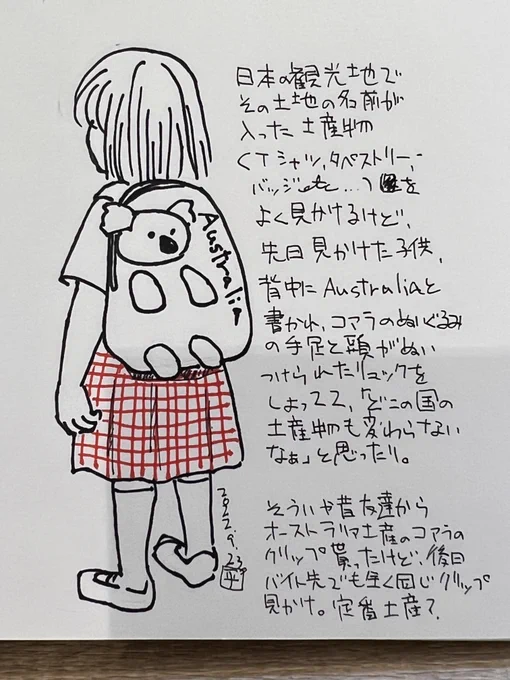 日本の観光地で
その土地の名前が
入った土産物
(Tシャツ,タペストリー,
バッジetc...)を
よく見かけるけど、
先日見かけた子供、
背中にAustraliaと
書かれ、コアラのぬいぐるみ
の手足と頭がぬい
つけられたリュックを
しょってて、「どこの国の
土産物も変わらない
なぁ」と思ったり。
そういや昔友達から
オーストラリア土産のコアラの
クリップ貰ったけど、後日
バイト先でも全く同じクリップ
見かけ。定番土産?
Australia
2022.9.23.